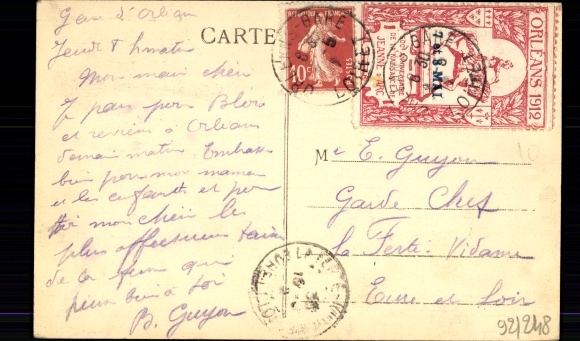 Gare d'Orléans
Jeudi 8h matin
Mon mari chéri
Je pars pour Blois
et reviens à Orléans
demain matin. Embrasse
bien pour moi maman
et les enfants et pour
toi mon chéri les
plus affectueux baisers
de la femme qui
pense bien à toi
B. Guyon
CARTE
10c
ORLEANS-GARE
LOIRET
ORLEANS 1912
7 et 8 MAI
500e
DE NAISSANCE DE
JEANNE D'ARC
GARE
LOIRET
Mr E. Guyon
Garde Chef
la Ferté-Vidame
Eure et Loir
LA FERTE-VIDAME
92/248